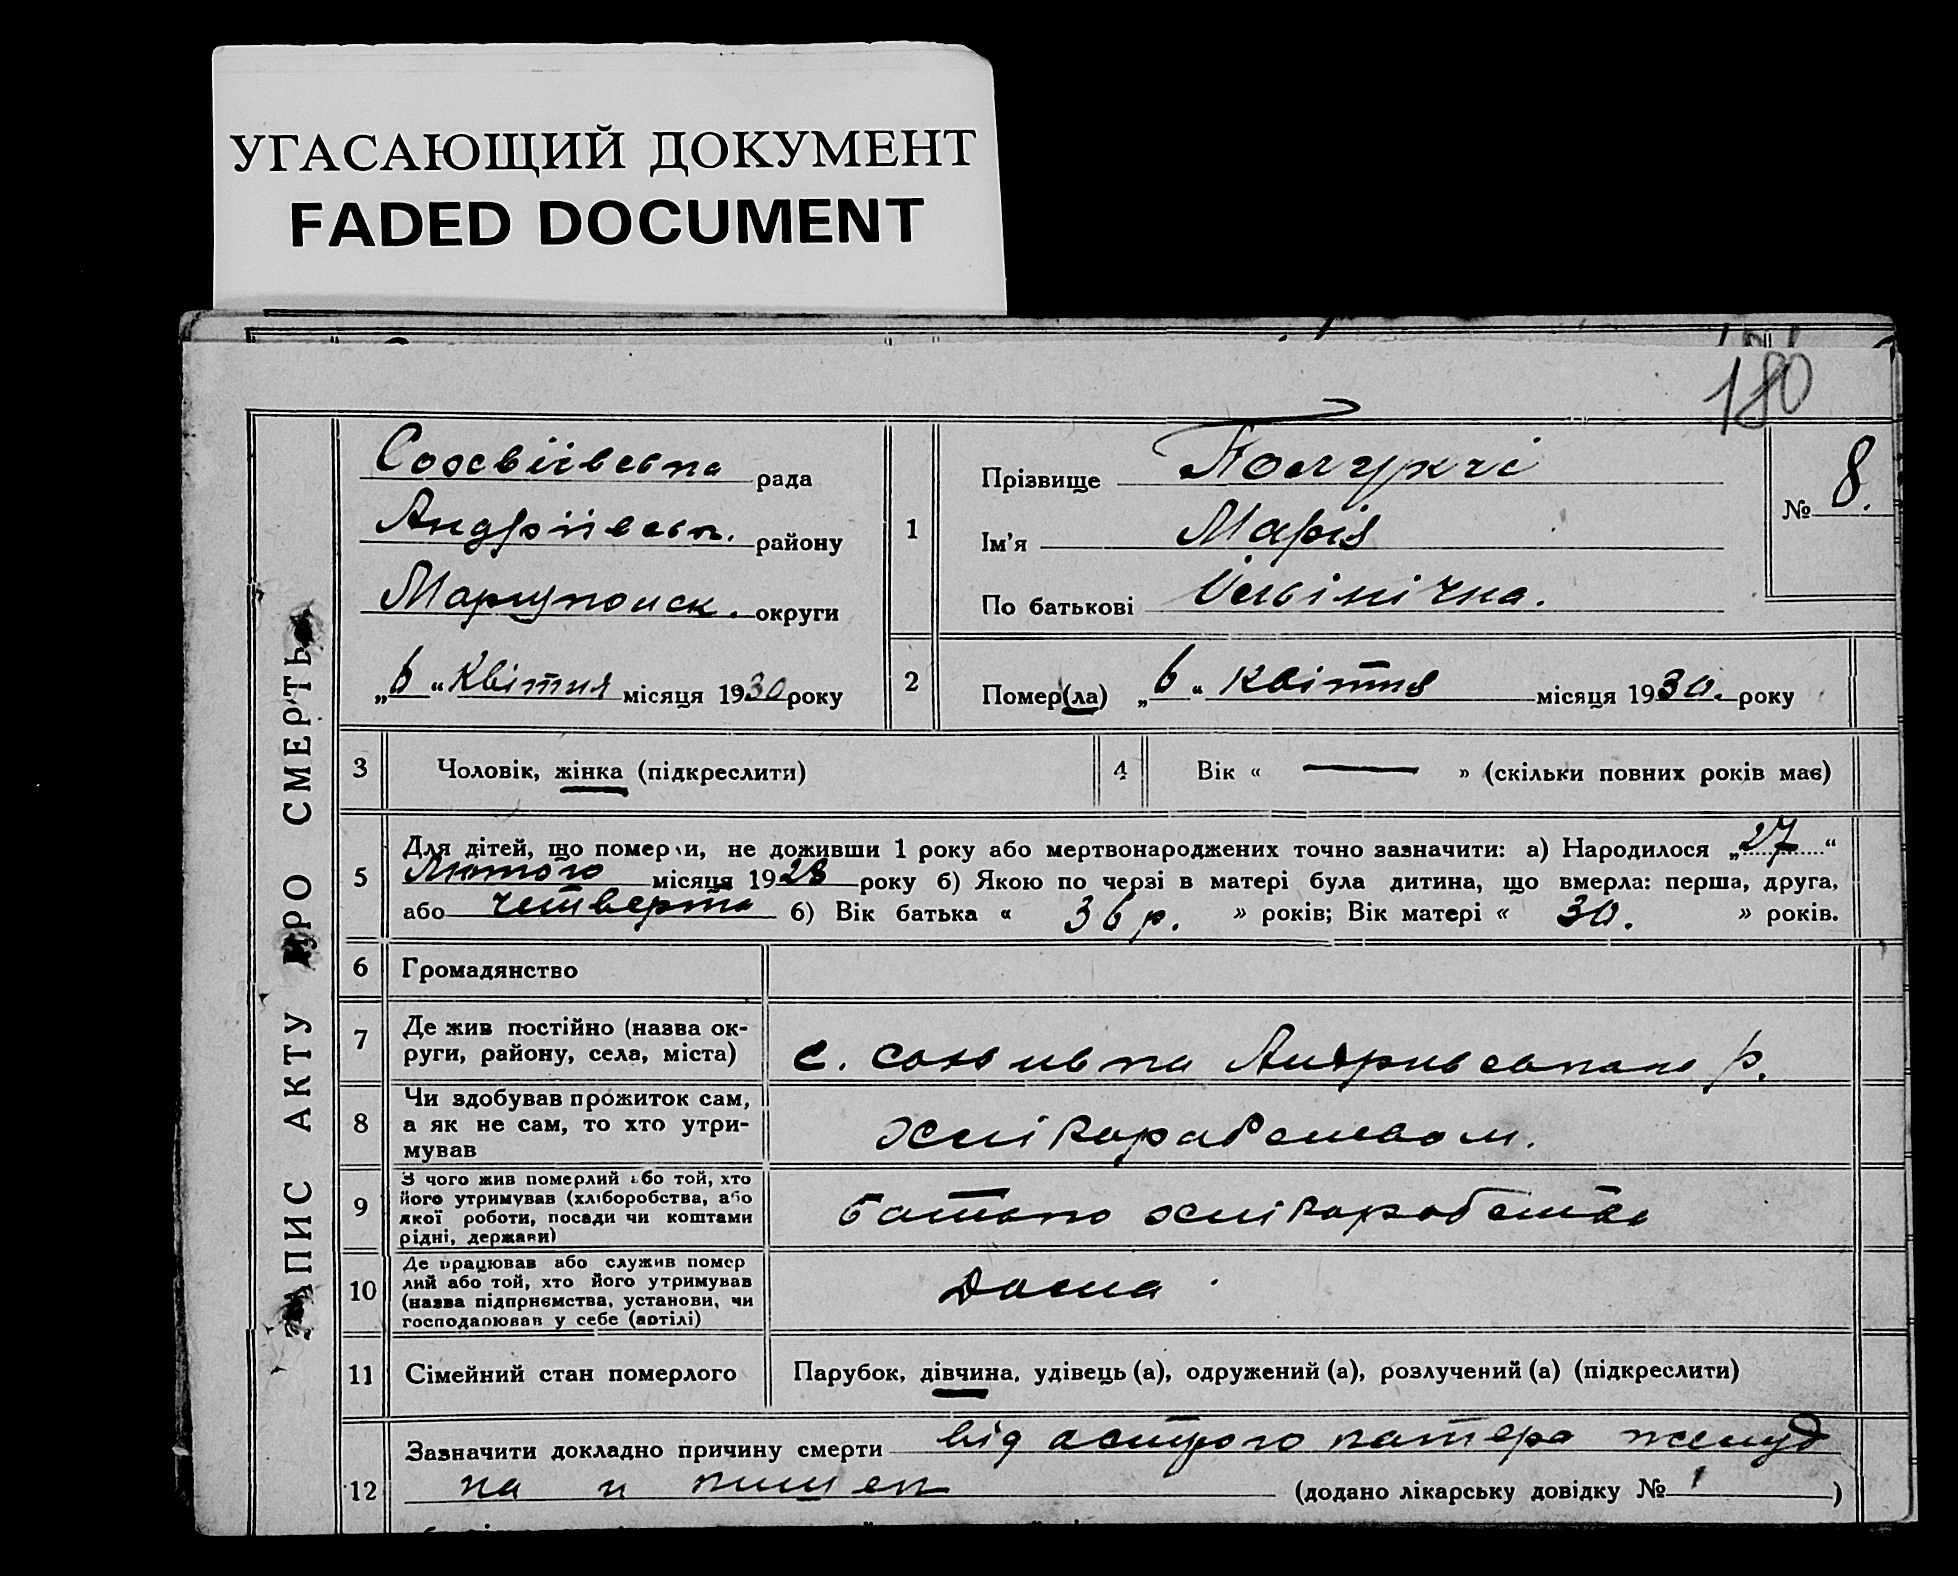 УГАСАЮЩИЙ ДОКУМЕНТ
FADED DOCUMENT
180
ЗАПИС АКТУ ПРО СМЕРТЬ
рада
Андріївськ. району
Маріупольск. округи
„6“ Квітня місяця 1930 року
1
Прізвище
Ім'я Марія
По батькові
№ 8.
2
Помер(ла) „6“ Квітня місяця 1930. року
3
Чоловік, жінка (підкреслити)
4
Вік « — » (скільки повних років має)
5
Для дітей, що померли, не доживши 1 року або мертвонароджених точно зазначити: а) Народилося „27“
Лютого місяця 1928 року б) Якою по черзі в матері була дитина, що вмерла: перша, друга,
або четверта б) Вік батька « 36 р. » років; Вік матері « 30. » років.
6
Громадянство
7
Де жив постійно (назва ок-
руги, району, села, міста)
с.
р.
8
Чи здобував прожиток сам,
а як не сам, то хто утри-
мував
9
З чого жив померлий або той, хто
його утримував (хліборобства, або
якої роботи, посади чи коштами
рідні, держави)
10
Де працював або служив помер
лий або той, хто його утримував
(назва підприємства, установи, чи
господарював у себе (артілі)
Дома
11
Сімейний стан померлого
Парубок, дівчина, удівець (а), одружений (а), розлучений (а) (підкреслити)
12
Зазначити докладно причину смерти від острого катера желуд
ка и кишек (додано лікарську довідку № 1)